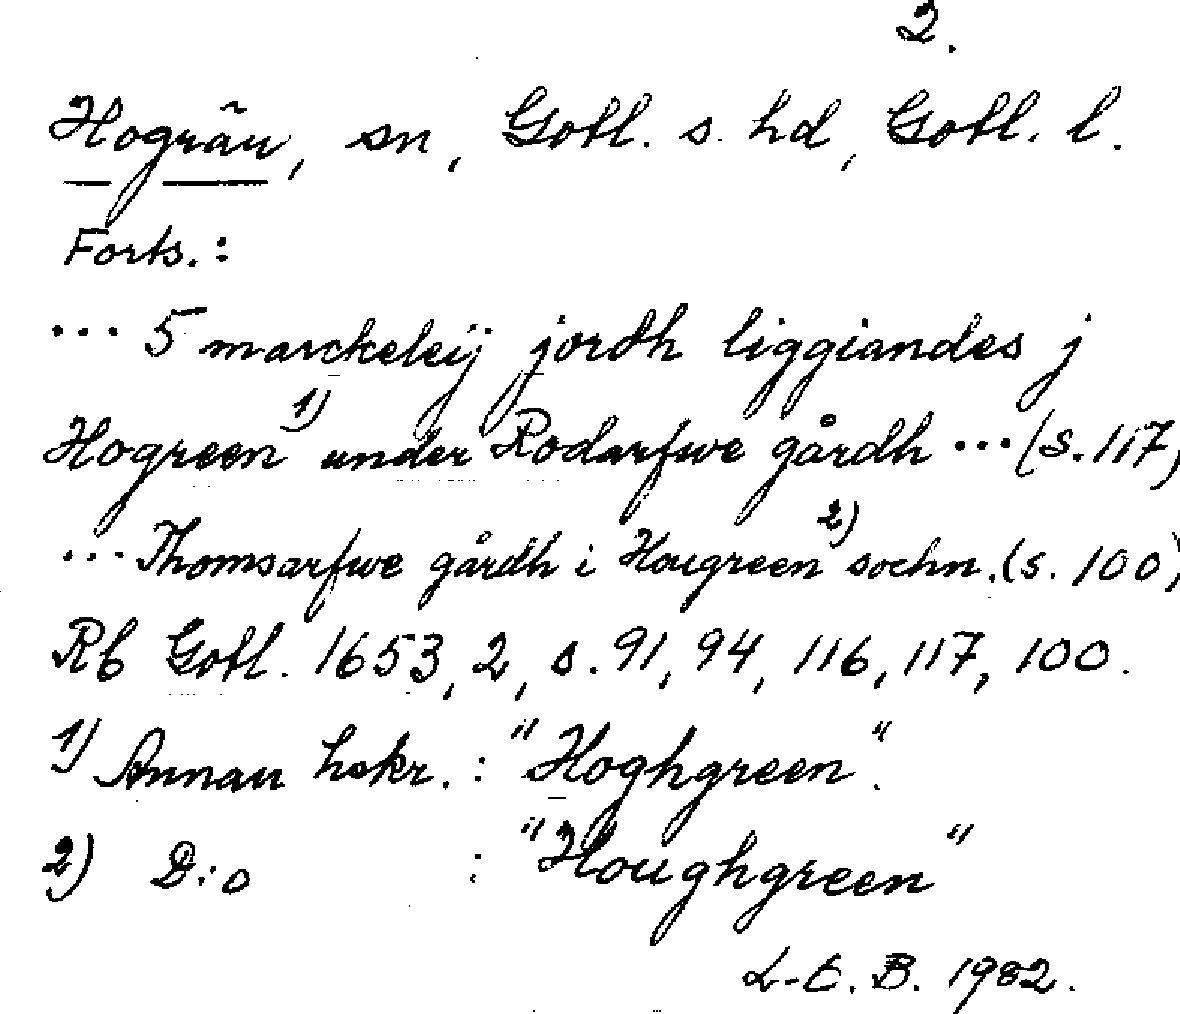 2.
Hogrän, sn, Gotl. s. hd, Gotl. l.
Forts.:
... 5 marckeleij jordh liggiandes j
Hogreen 1) under Rodarfwe gårdh ... (s. 117)
... Thomsarfwe gårdh i Hougreen 2) sochn. (s. 100)
Rb Gotl. 1653, 2, s. 91, 94, 116, 117, 100.
1) Annan hskr. : "Hoghgreen".
2) D:o : "Houghgreen"
L-E. B. 1982.